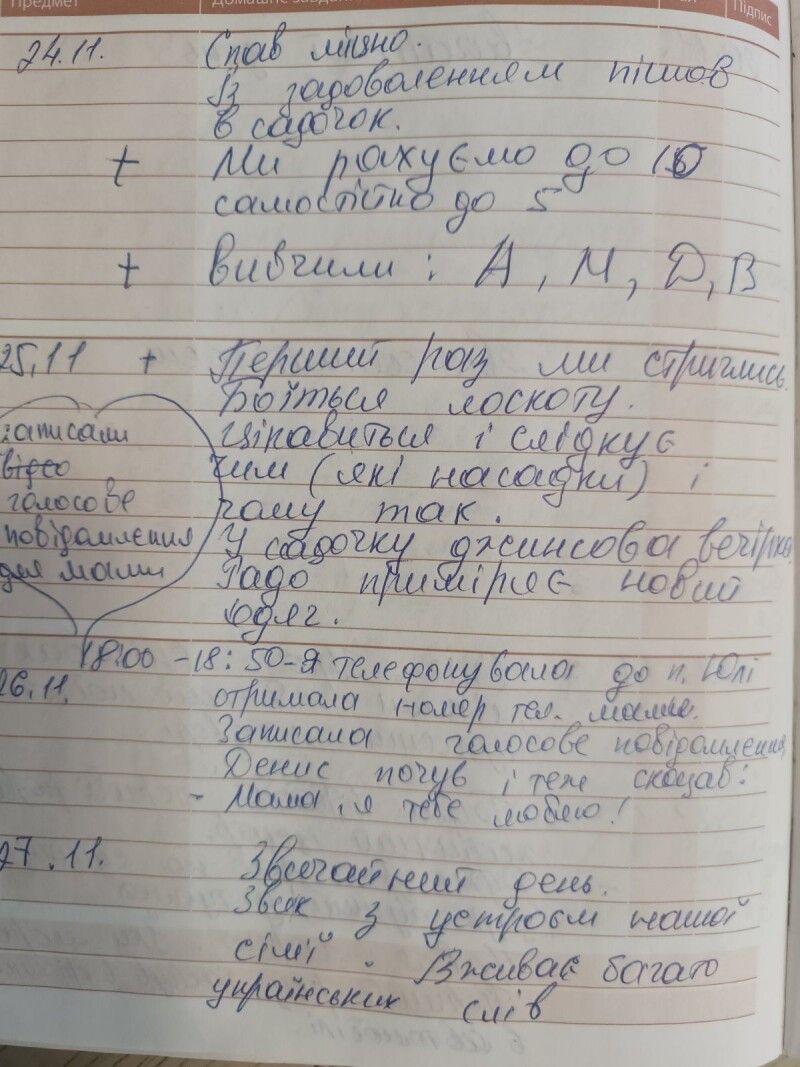 Предмет
Підпис
24.11. Спав міцно.
Із задоволенням пішов
в садочок.
+ Ми рахуємо до 10
самостійно до 5
+ Вивчили: А, М, Д, В
25.11 + Перший раз ми стриглись.
Боїться лоскоту.
Цікавиться і слідкує
чим (які насадки) і
чому так.
У садочку джинсова вечірка
Радо приміряє новий
одяг.
записали
відео
голосове
повідомлення
для мами
18:00 - 18:50 - Я телефонувала до п. Юлі
26.11. отримала номер тел. мами.
Записала голосове повідомлення
Денис почув і теж сказав:
- Мама, я тебе люблю!
27.11. Звичайний день.
Звик з устроєм нашої
сім'ї. Вживає багато
українських слів